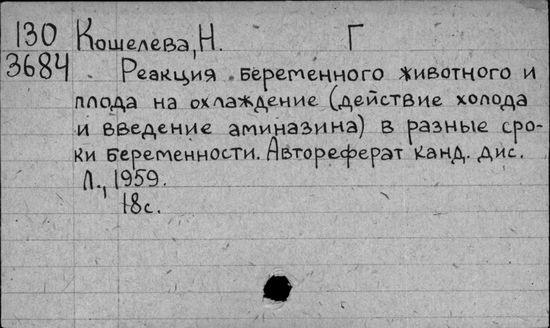 130 Кошелева, Н. Г
3684 Реакция беременного животного и
плода на охлаждение (действие холода
и введение аминазина) в разные сро-
ки беременности. Автореферат канд. дис.
Л., 1959.
18с.